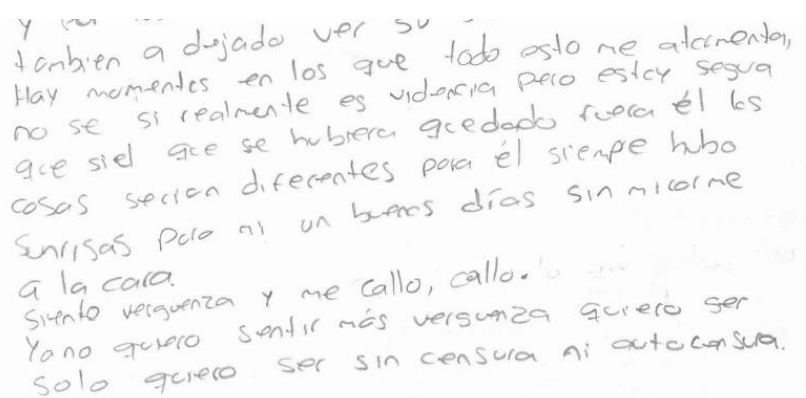 y por
tanbien a dejado ver su
Hay momentes en los que todo esto me atormenta,
no se si realmente es violencia pero estoy segura
que siel que se hubiera quedado fuera él las
cosas serian diferentes para él siempre hubo
sunrisas para mi un buenos días sin mirarme
a la cara.
Siento verguenza y me callo, callo.
Yo no quiero sentir más verguenza quiero ser
solo quiero ser sin censura ni autocensura.